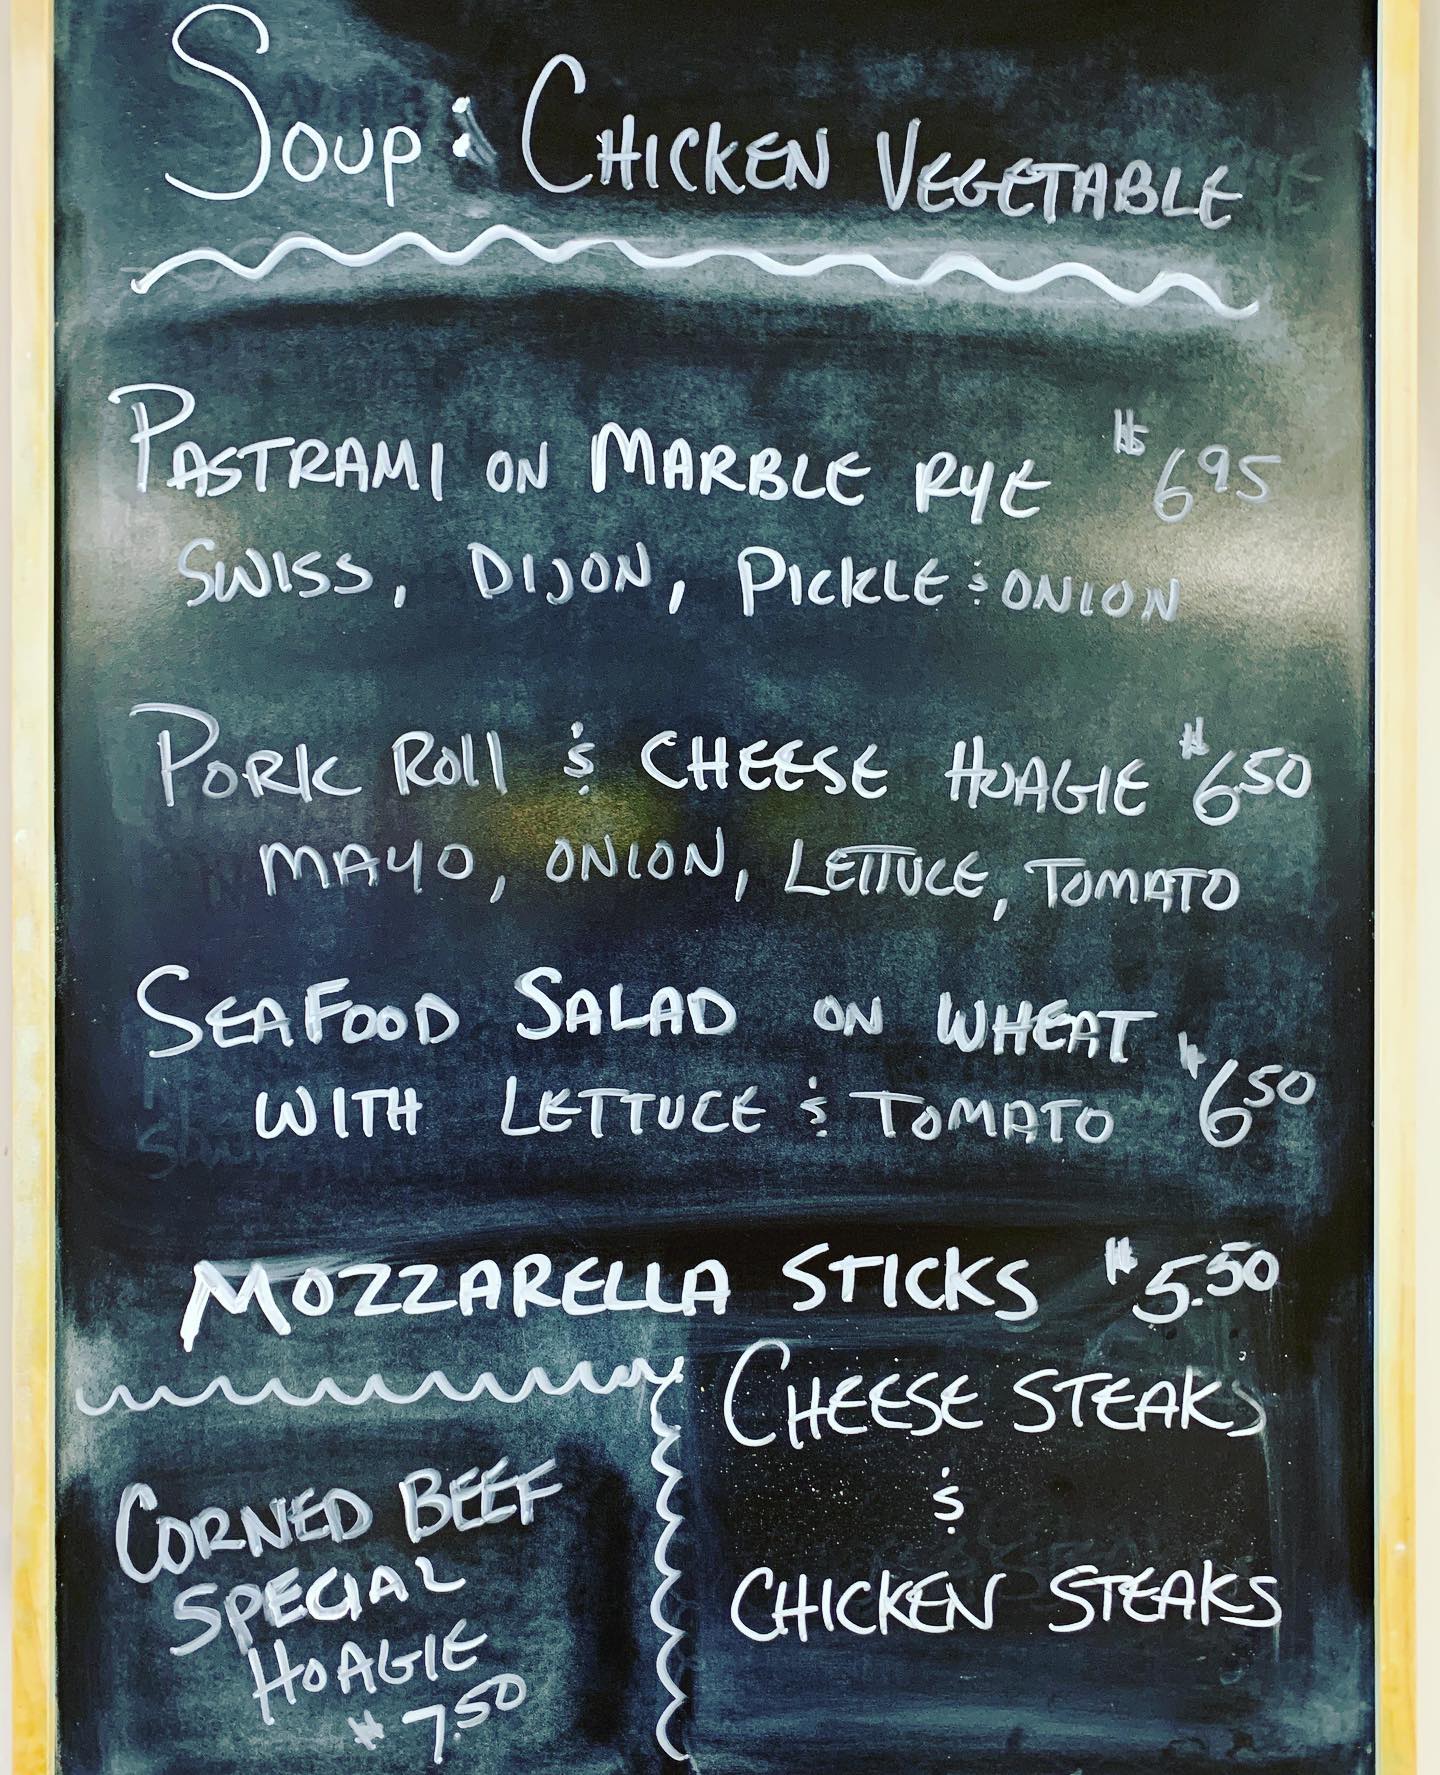 Soup: Chicken Vegetable
Pastrami on Marble Rye $6.95
Swiss, Dijon, Pickle & Onion
Pork Roll & Cheese Hoagie $6.50
Mayo, Onion, Lettuce, Tomato
Seafood Salad on Wheat
with Lettuce & Tomato $6.50
Mozzarella Sticks $5.50
Cheese Steaks
&
Chicken Steaks
Corned Beef
Special
Hoagie
$7.50